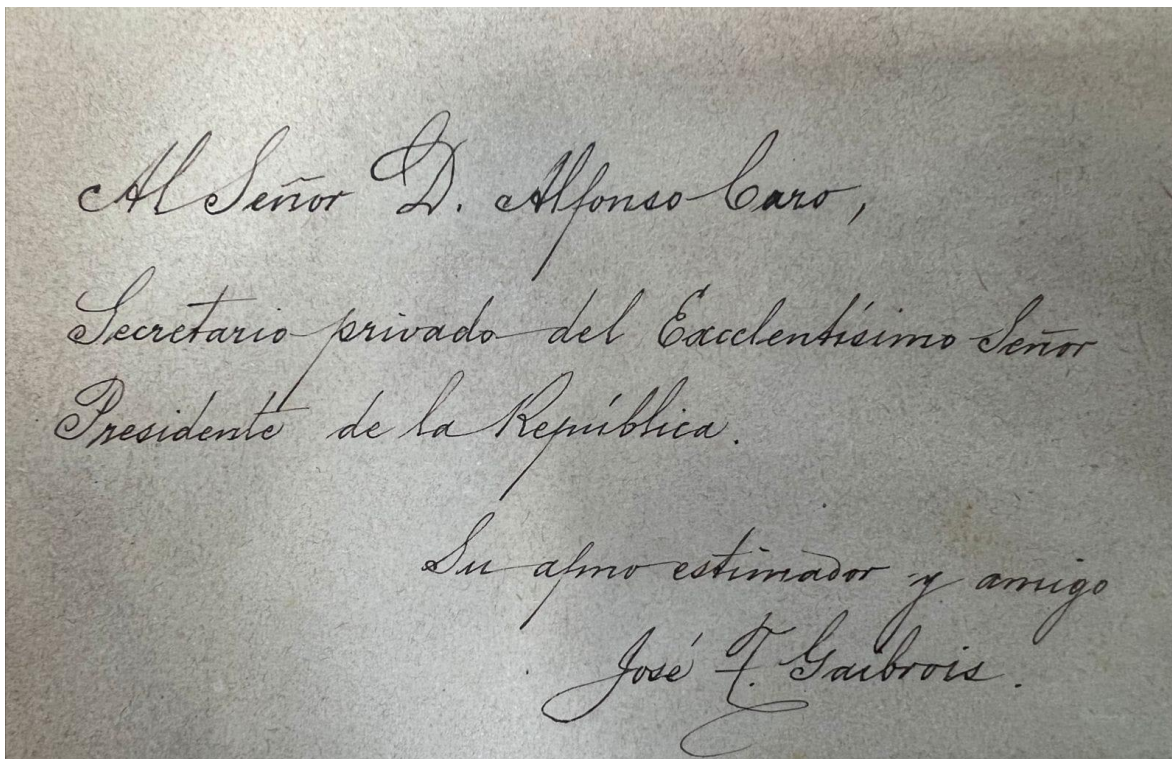 Al Señor D. Alfonso Caro,
Secretario privado del Excelentísimo Señor
Presidente de la República.
Su afmo estimador y amigo
José T. Gaibrois.